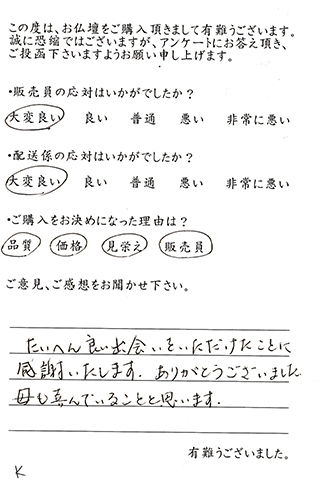 この度は、お仏壇をご購入頂きまして有難うございます。
誠に恐縮ではございますが、アンケートにお答え頂き、
ご投函下さいますようお願い申し上げます。
・販売員の応対はいかがでしたか？
大変良い 良い 普通 悪い 非常に悪い
・配送係の応対はいかがでしたか？
大変良い 良い 普通 悪い 非常に悪い
・ご購入をお決めになった理由は？
品質 価格 見栄え 販売員
ご意見、ご感想をお聞かせ下さい。
たいへん良い出会いをいただけたことに
感謝いたします。ありがとうございました
母も喜んでいることと思います。
有難うございました。
K